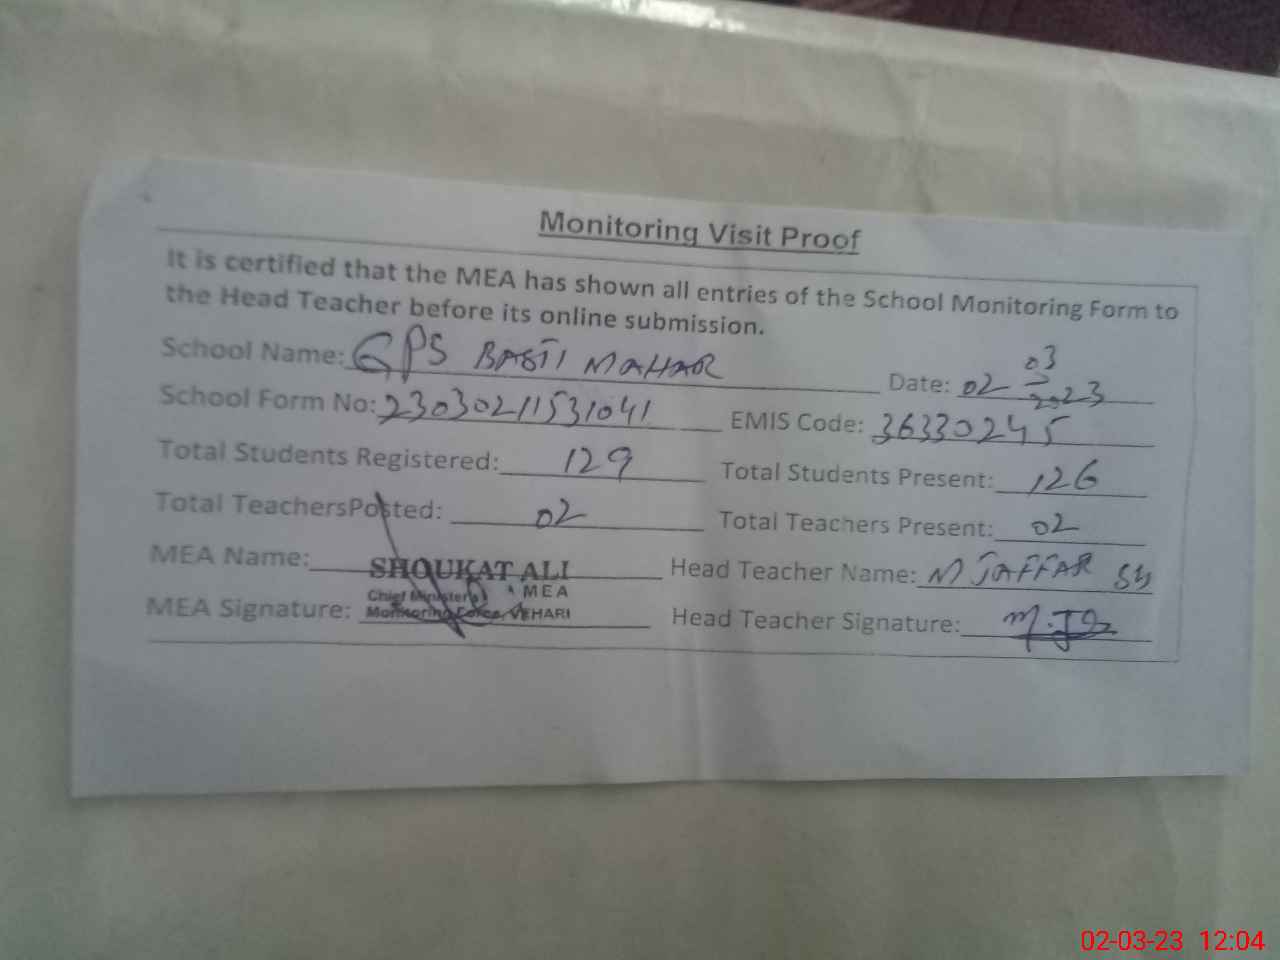 Monitoring Visit Proof
It is certified that the MEA has shown all entries of the School Monitoring Form to
the Head Teacher before its online submission.
School Name: GPS BASTI MAHAR Date: 02 03 2023
School Form No: 23030211531041 EMIS Code: 36330245
Total Students Registered: 129 Total Students Present: 126
Total TeachersPosted: 02 Total Teachers Present: 02
MEA Name: SHOUKAT ALI Head Teacher Name: M JAFFAR
Chief Minister's MEA
Monitoring Force, VEHARI
MEA Signature: Head Teacher Signature:
02-03-23 12:04